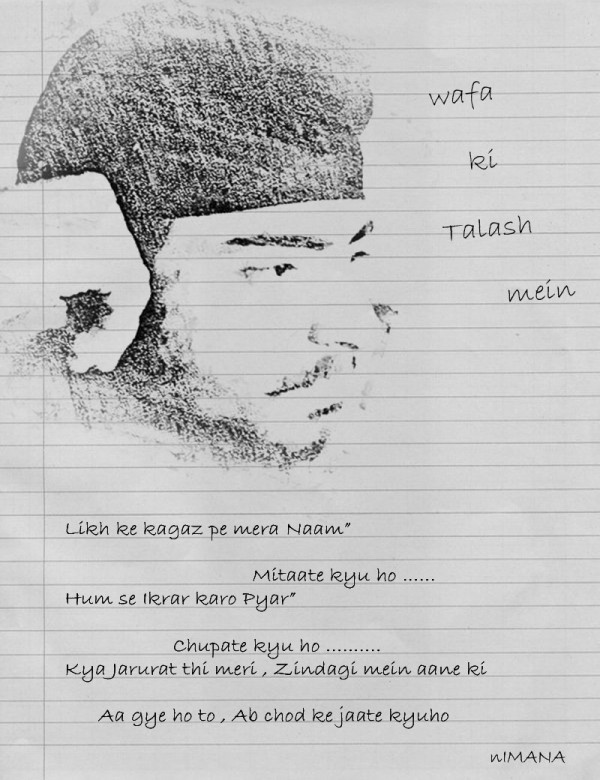 wafa
ki
Talash
mein
Likh ke kagaz pe mera Naam"
Mitaate kyu ho ......
Hum se Ikrar karo Pyar"
Chupate kyu ho ..........
Kya Jarurat thi meri , Zindagi mein aane ki
Aa gye ho to , Ab chod ke jaate kyuho
nIMANA